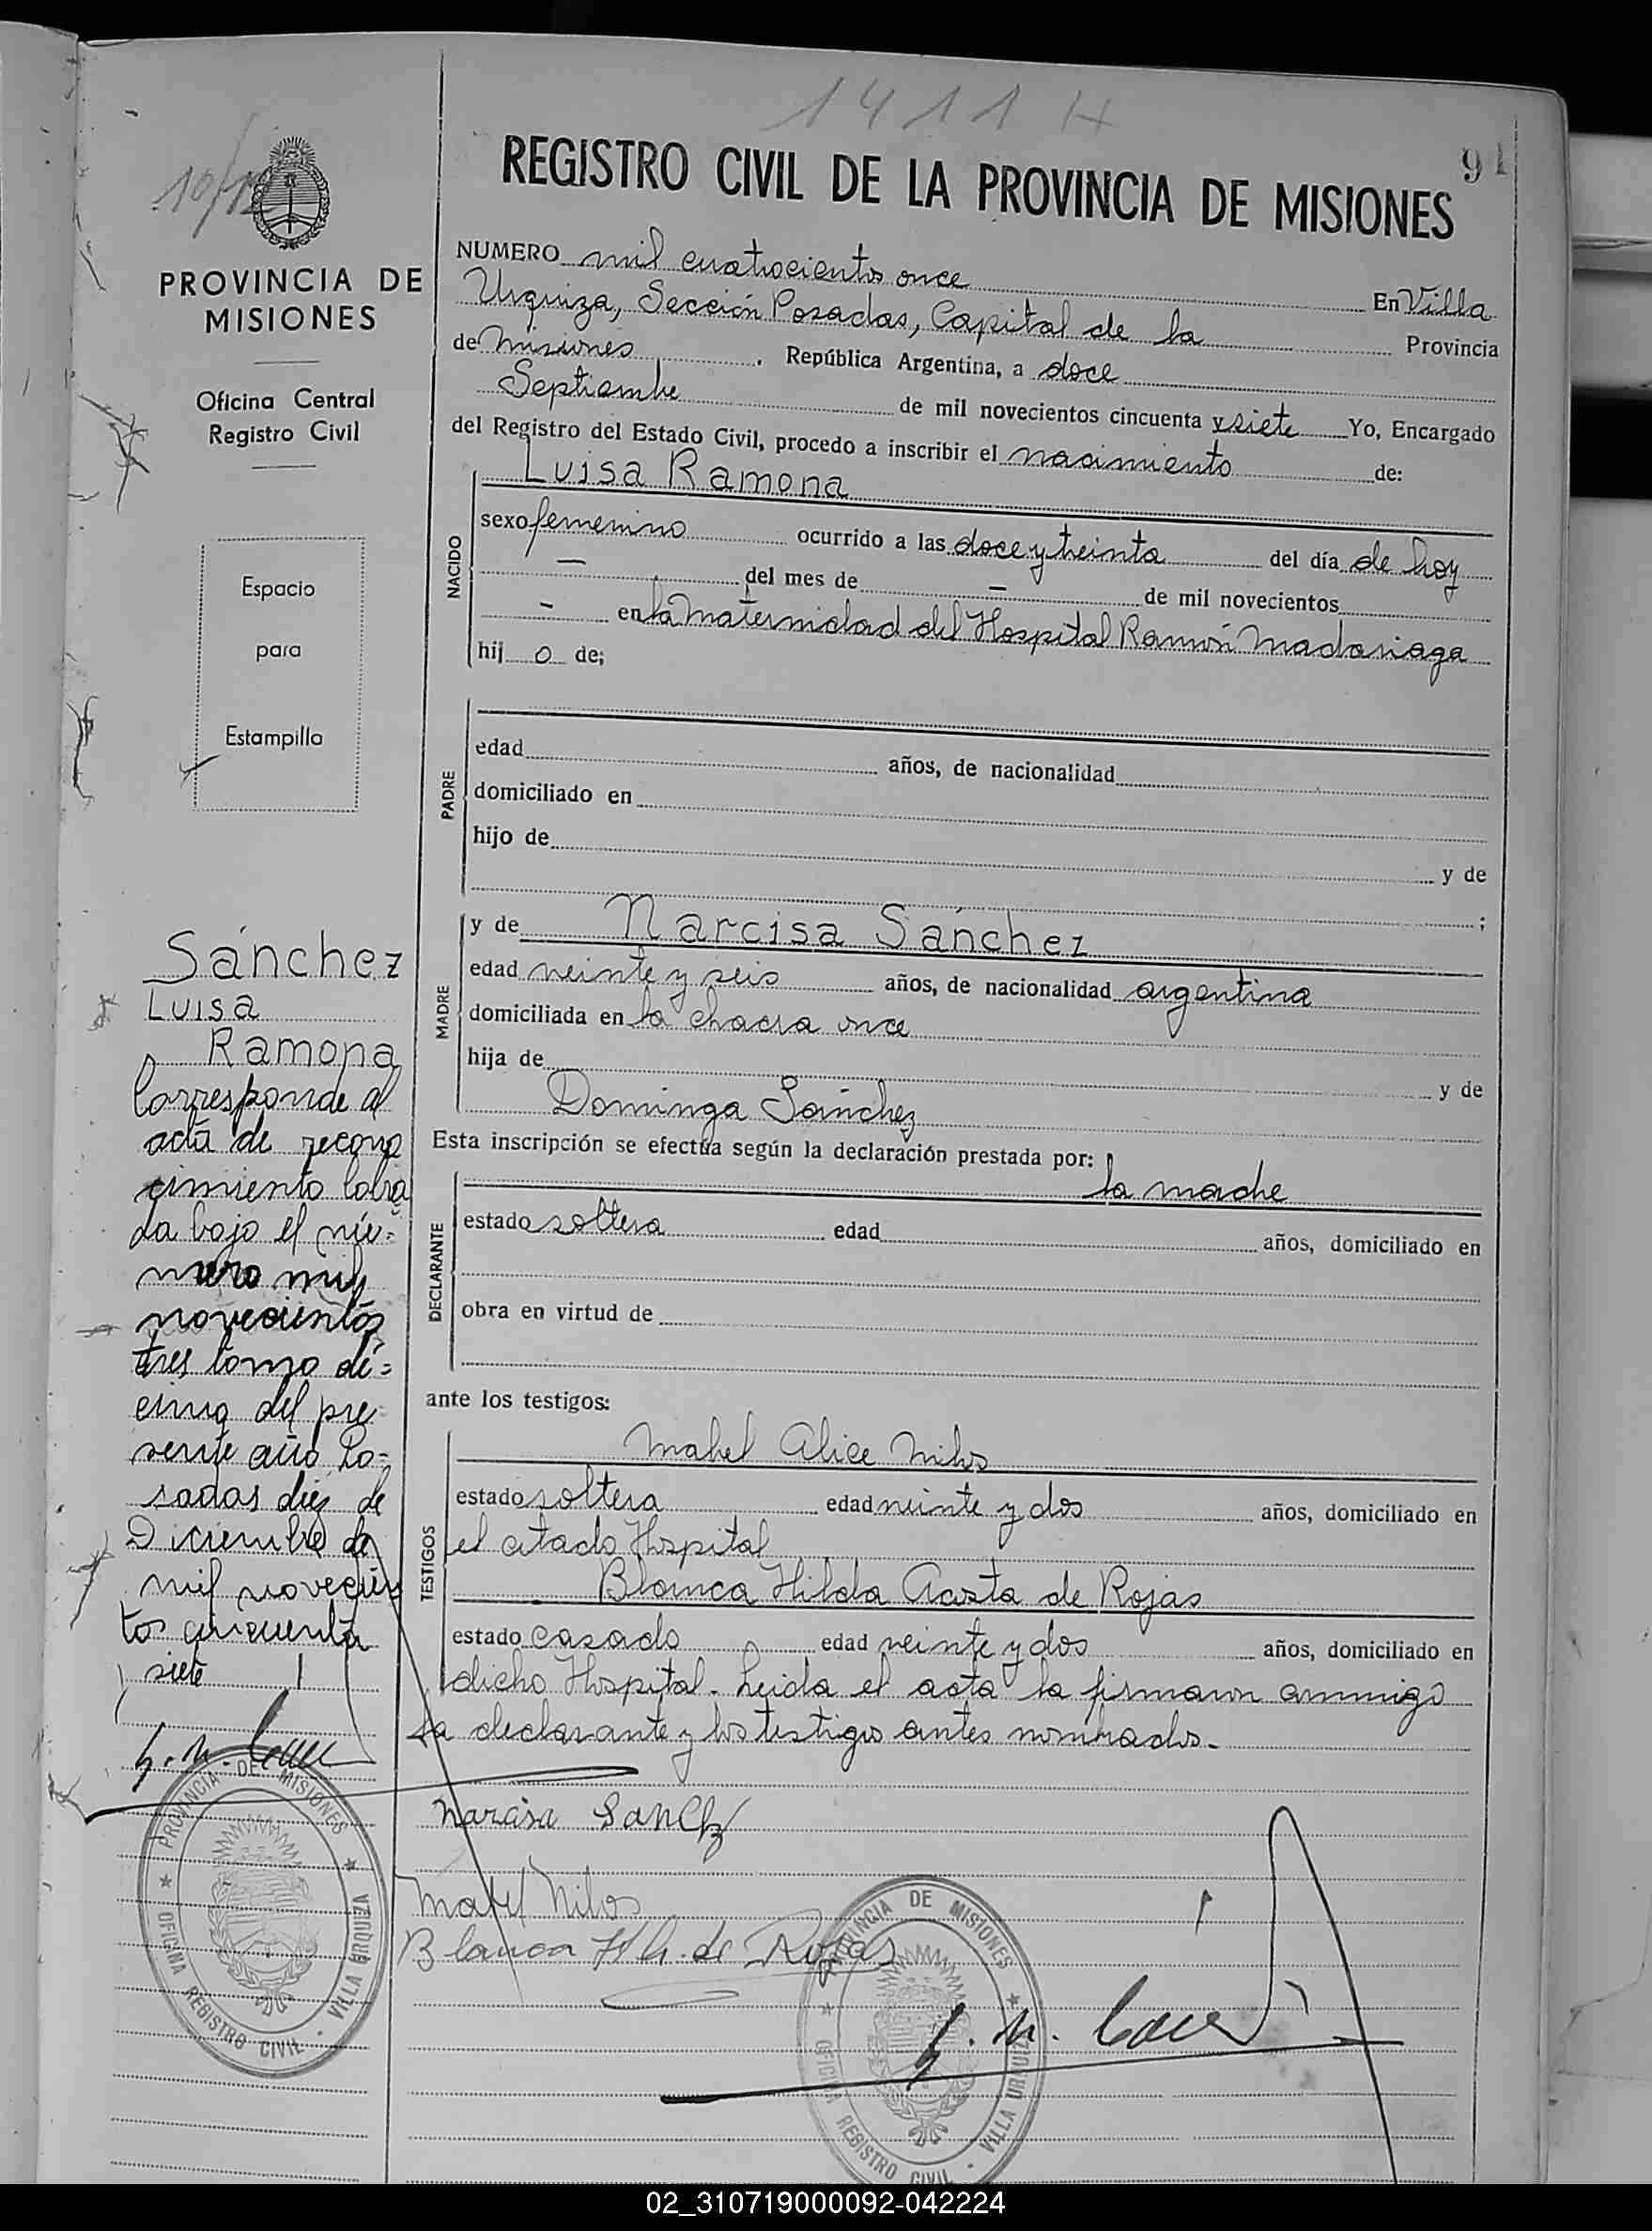 1411 H
91
10/12
REGISTRO CIVIL DE LA PROVINCIA DE MISIONES
PROVINCIA DE
MISIONES
Oficina Central
Registro Civil
Espacio
para
Estampilla
NUMERO mil cuatrocientos once En Villa
Urquiza, Sección Posadas, Capital de la Provincia
de Misiones. República Argentina, a doce
Septiembre de mil novecientos cincuenta y siete Yo, Encargado
del Registro del Estado Civil, procedo a inscribir el nacimiento de:
NACIDO
Luisa Ramona
sexo femenino ocurrido a las doce y treinta del día de hoy
— del mes de — de mil novecientos
— en la Maternidad del Hospital Ramón Madariaga
hij o de;
PADRE
edad años, de nacionalidad
domiciliado en
hijo de y de
;
MADRE
y de Narcisa Sánchez
edad veinte y seis años, de nacionalidad argentina
domiciliada en la chacra once
hija de y de
Dominga Sánchez
Esta inscripción se efectúa según la declaración prestada por:
DECLARANTE
la madre
estado soltera edad años, domiciliado en
obra en virtud de
ante los testigos:
TESTIGOS
Mabel Alice Nilos
estado soltera edad veinte y dos años, domiciliado en
el citado Hospital
Blanca Hilda Acosta de Rojas
estado casado edad veinte y dos años, domiciliado en
dicho Hospital. Leida el acta la firmaron conmigo
la declarante y los testigos antes nombrados.
Narcisa Sanchz
Mabel Nilos
Blanca H A. de Rojas
Sánchez
Luisa
Ramona
Corresponde al
acta de recono
cimiento labra
da bajo el nú=
mero mil
novecientos
tres tomo dé=
cimo del pre
sente año Po=
sadas diez de
Diciembre de
mil novecien
tos cincuenta
siete
PROVINCIA DE MISIONES
OFICINA REGISTRO CIVIL - VILLA URQUIZA
PROVINCIA DE MISIONES
OFICINA REGISTRO CIVIL - VILLA URQUIZA
02_310719000092-042224